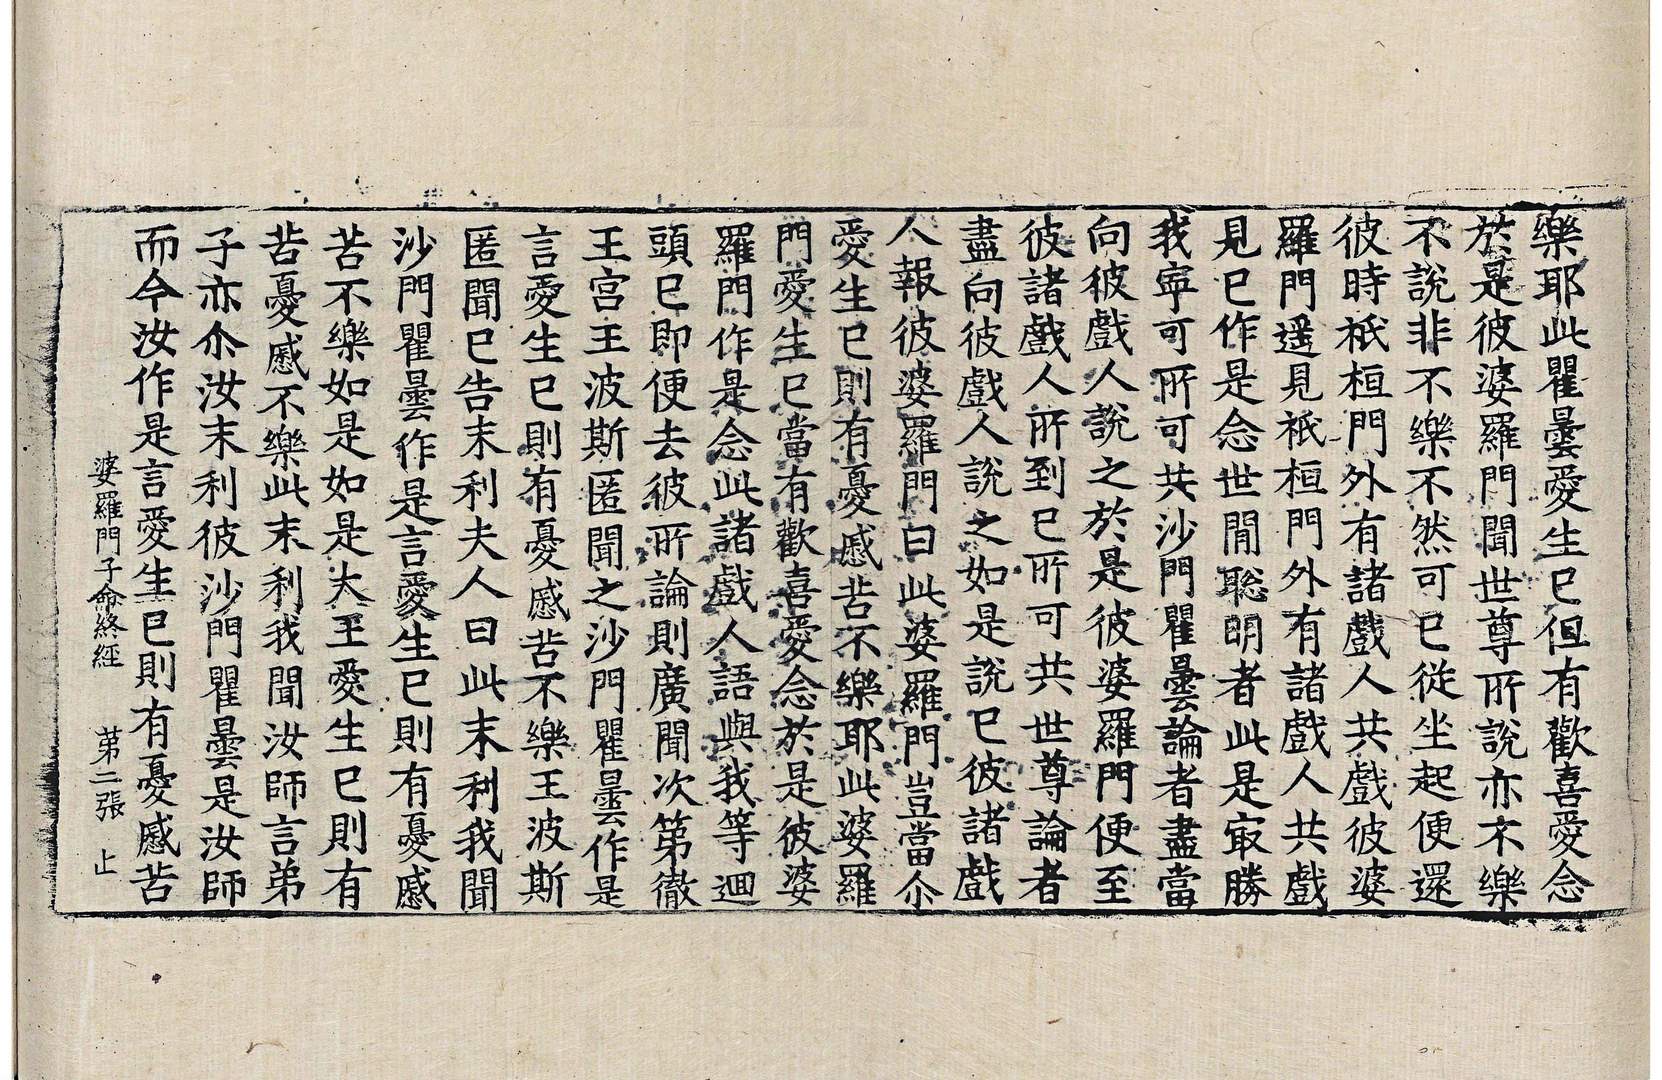 樂耶此瞿曇愛生已但有歡喜愛念
於是彼婆羅門聞世尊所說亦不樂
不說非不樂不然可已從坐起便還
彼時祇桓門外有諸戲人共戲彼婆
羅門遥見祇桓門外有諸戲人共戲
見已作是念世閒聡明者此是㝡勝
我寧可所可共沙門瞿曇論者盡當
向彼戲人說之於是彼婆羅門便至
彼諸戲人所到已所可共世尊論者
盡向彼戲人說之如是說已彼諸戲
人報彼婆羅門曰此婆羅門豈當尒
愛生已則有憂慼苦不樂耶此婆羅
門愛生已當有歡喜愛念於是彼婆
羅門作是念此諸戲人語與我等迴
頭已即便去彼所論則廣聞次第徹
王宮王波斯匿聞之沙門瞿曇作是
言愛生已則有憂慼苦不樂王波斯
匿聞已告末利夫人曰此末利我聞
沙門瞿曇作是言愛生已則有憂慼
苦不樂如是如是大王愛生已則有
苦憂慼不樂此末利我聞汝師言弟
子亦尒汝末利彼沙門瞿曇是汝師
而今汝作是言愛生已則有憂慼苦
婆羅門子命終經 第二張 止